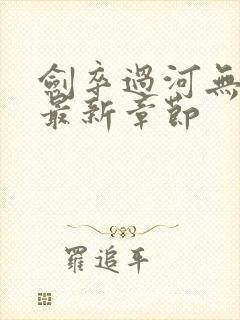 劍卒過河無
最新章節
羅追平